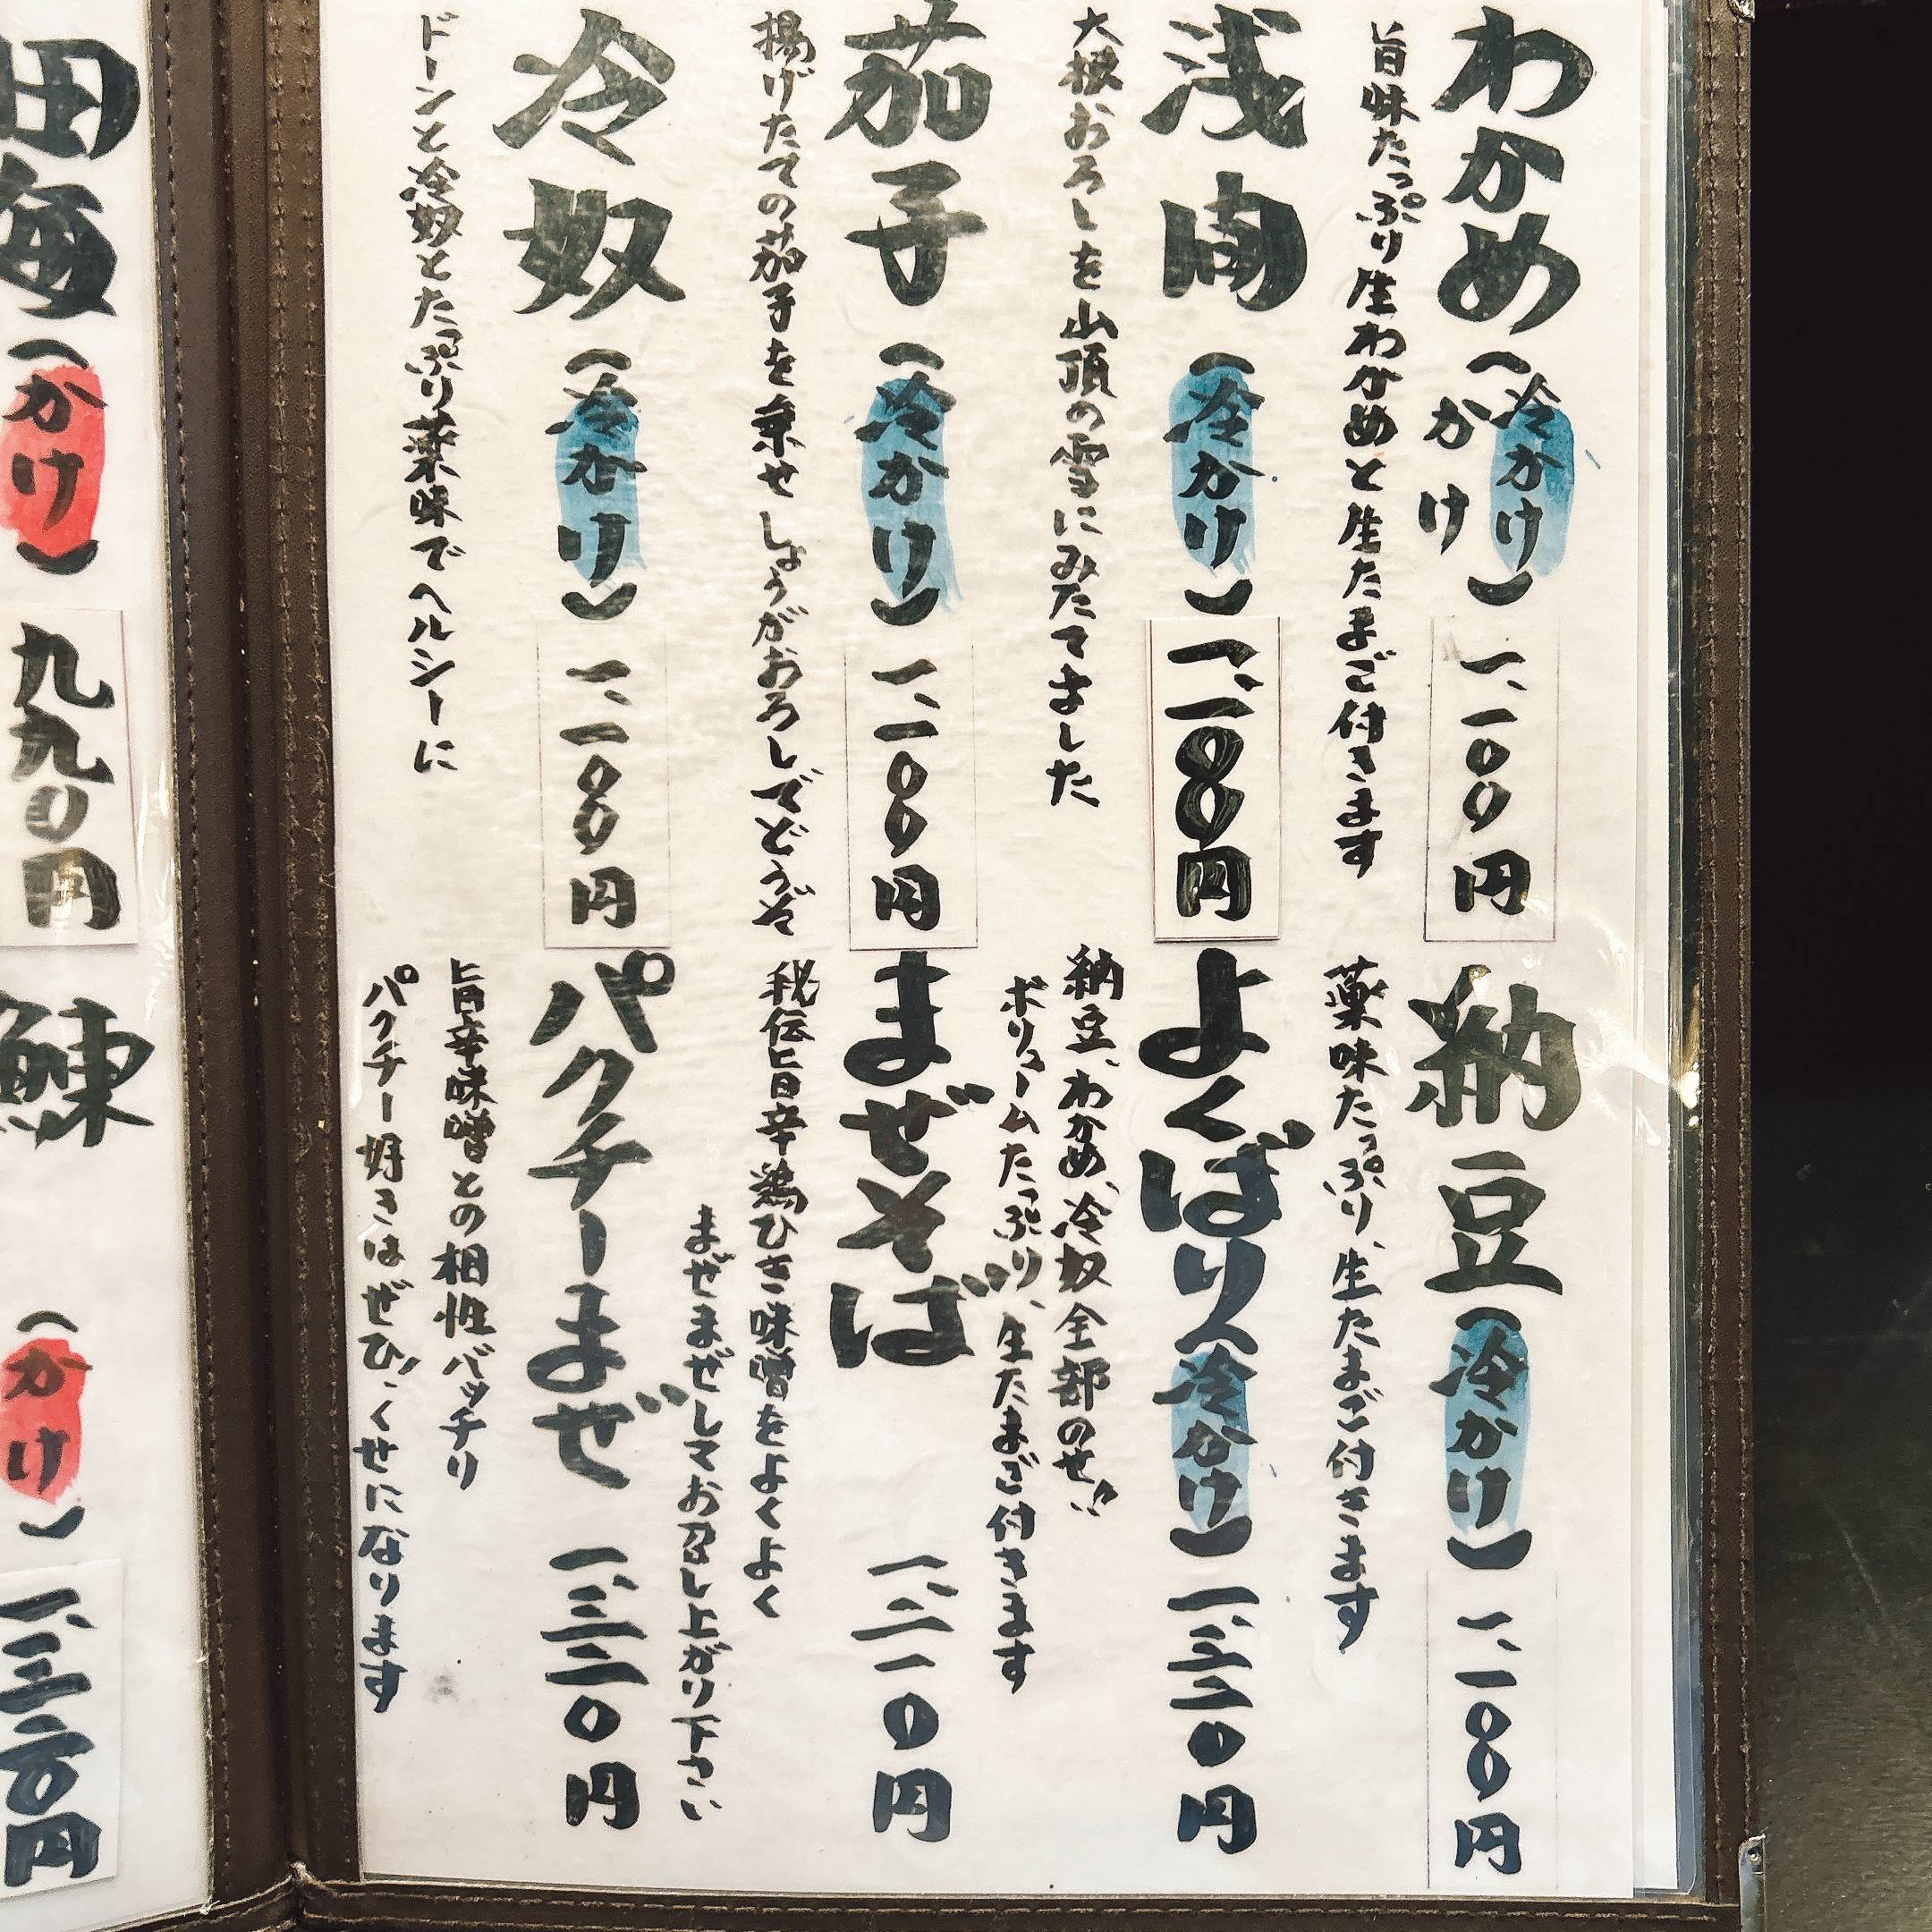 わかめ(冷かけ
かけ) 一、一〇〇円
旨味たっぷり生わかめと生たまご付きます
浅間(冷かけ) 一、一〇〇円
大根おろしを山頂の雪にみたてました
茄子(冷かけ) 一、一〇〇円
揚げたての茄子を乗せしょうがおろしでどうぞ
冷奴(冷かけ) 一、一〇〇円
ドーンと冷奴とたっぷり薬味でヘルシーに
納豆(冷かけ) 一、一〇〇円
薬味たっぷり、生たまご付きます
よくばり(冷かけ) 一、三二〇円
納豆、わかめ、冷奴全部のせ!!
ボリュームたっぷり、生たまご付きます
まぜそば 一、二一〇円
秘伝旨辛鶏ひき味噌をよくよく
まぜまぜしてお召し上がり下さい
パクチーまぜ 一、三二〇円
旨辛味噌との相性バッチリ
パクチー好きはぜひ!くせになります
海(かけ) 九九〇円
(かけ)